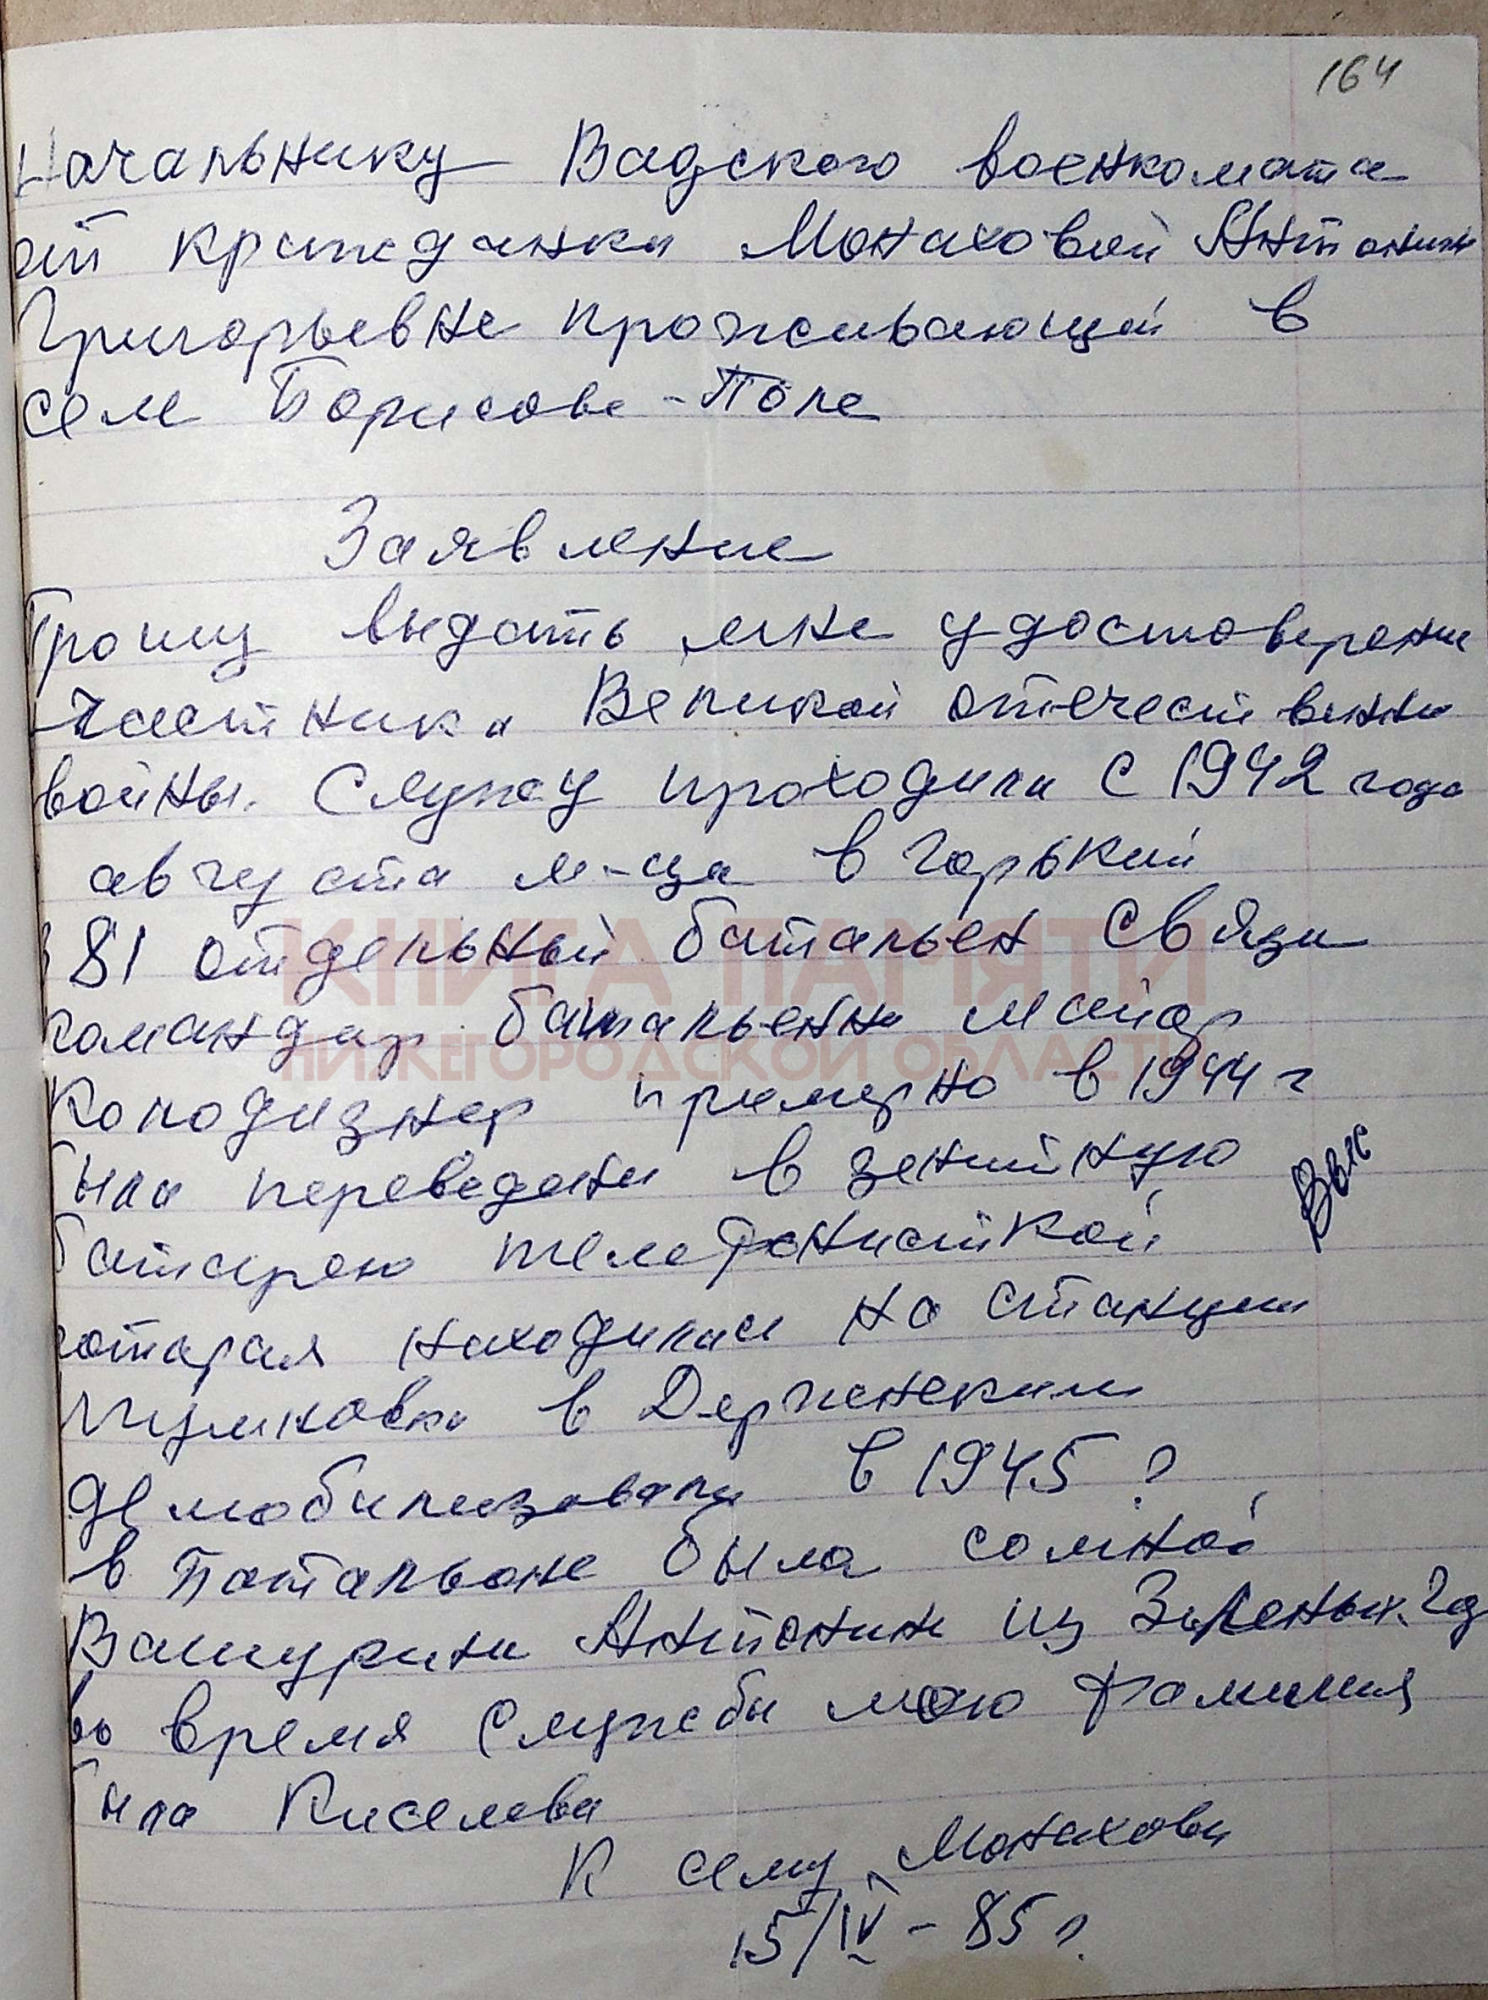 164
Начальнику Вадского военкомата
от кражданки Монаховой Антонины
Григорьевне проживающей в
селе Борисове-Поле
Заявление
Прошу выдать мне удостоверение
участника Великой отечествинно
войны. Службу проходила с 1942 года
августа м-ца в Горький
в 81 отдельный батальен Связи
командир батальенна майор
Колодизнер примерно в 1944 г
была переведена в зенитную
батарею телефонисткой
которая находилась на станции
в Держенским
демобилизовали в 1945 г
в Батальоне была сомной
Вашурина Антонина из Зеленых. Гор
во время Службы мою фамилия
была Киселева
К сему Монахова
15/IV - 85 г.
КНИГА ПАМЯТИ
НИЖЕГОРОДСКОЙ ОБЛАСТИ